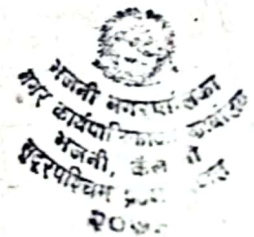 भजनी नगरपालिका
नगर कार्यपालिकाको कार्यालय
भजनी, कैलाली
सुदूरपश्चिम प्रदेश